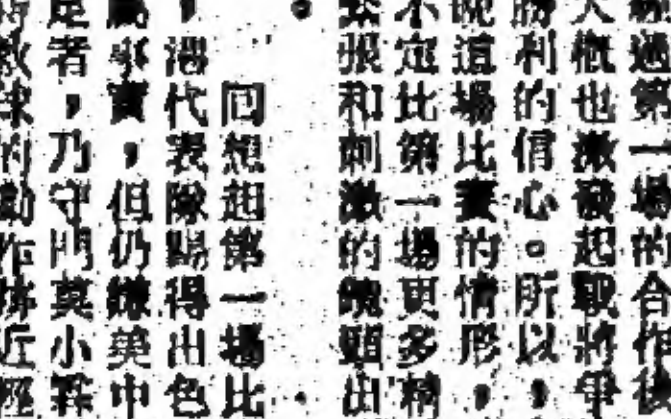 過第一場的合作後
大概也激發起戰將爭
勝利的信心。所以，
晚這場比賽的情形，
不定比第一場更多精
緊張和刺激的鏡頭出
。
回想起第一場比
，港代表隊踢得出色
屬事實，但仍嫌美中
足者，乃守門莫小霖
時救球的動作接近